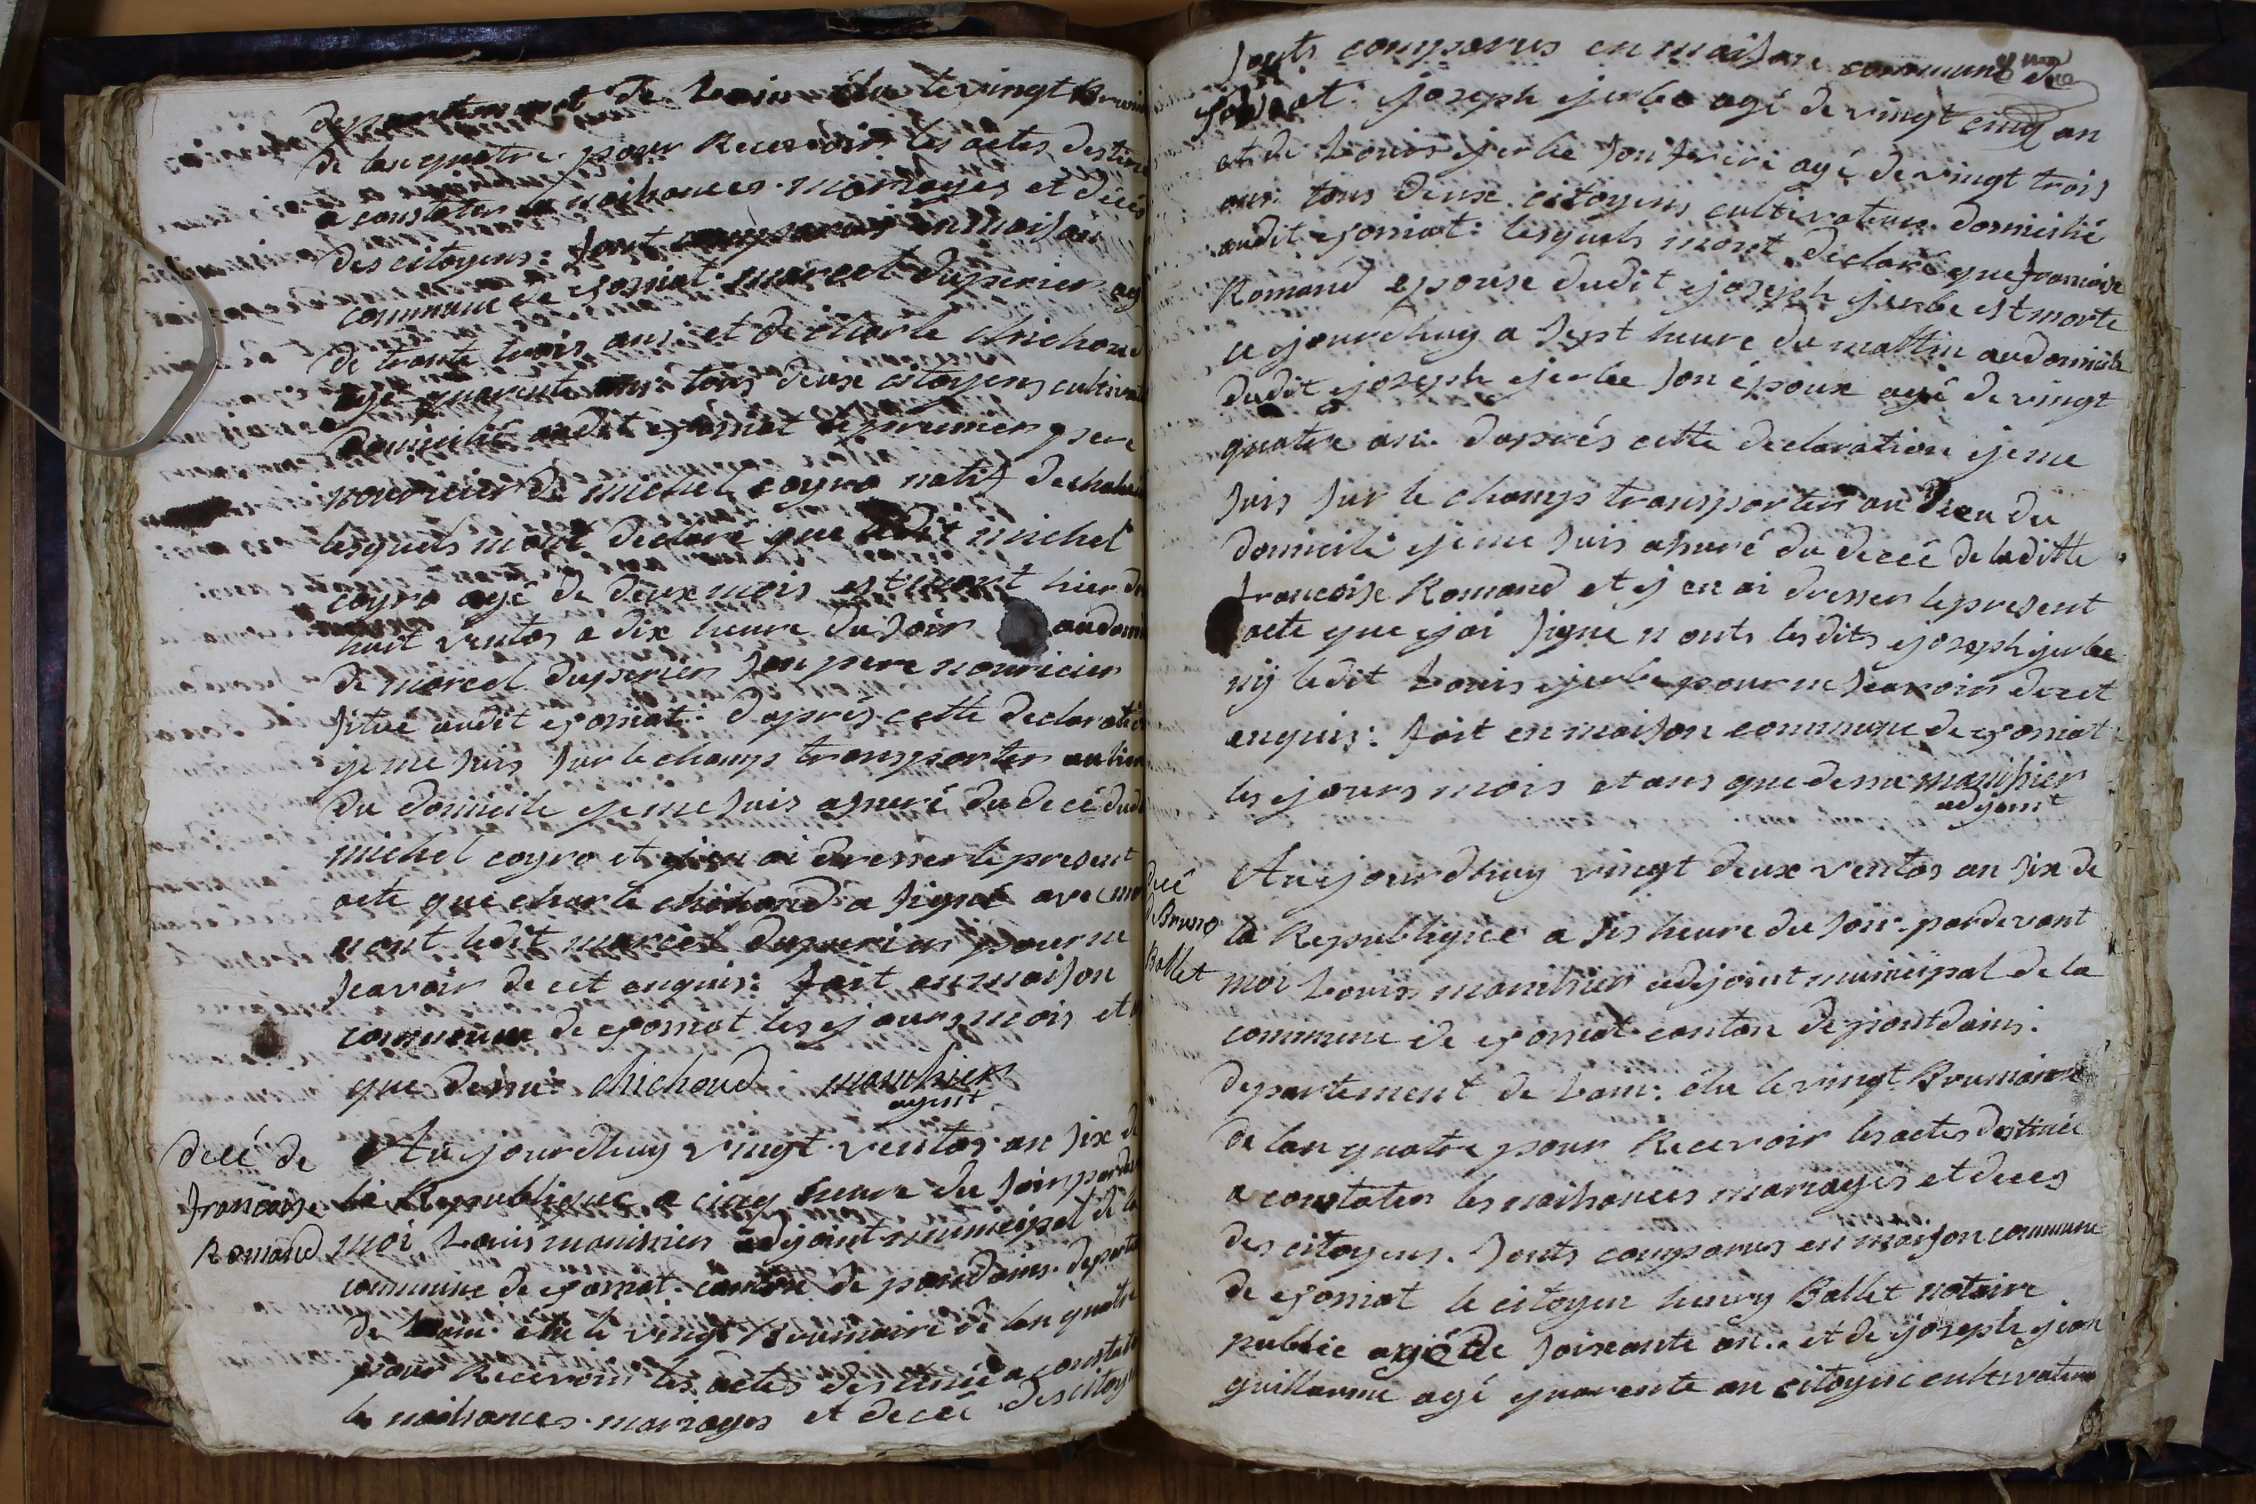 departement de Lain élu le vingt Brum
de lan quatre pour Recevoir les actes destiné
a constater naihances mariages et décés
des citoyens: sont comparus en maison
commune de josniat marcel duperier agé
de trante trois ans et de charle chichoud
agé quarente ans tous deux citoyens cultivat
domicilié audit josniat le premier pere
nouricier de michel coyro natif de
lesquels mont declaré que ledit michel
coyro agé de deux mois est mort hier dix
huit ventos a dix heure du soir au domi
de marcel duperier son pere nouricier
situé audit josniat: dapres cette declaratio
je me suis sur le champs transporter au lieu
du domicile je me suis assuré du decé dud
michel coyro et jen ai dresser le present
acte que charle chichoud a signé avec moi
nont ledit marcel duperier pour ne
scavoir de cet enquis: fait en maison
commune de josniat les jours mois et
que dessu: chichoud manihier
agent
decé de
francoise
Romand
Aujourdhuy vingt ventos an six de
la Republique a cinq heure du soir parde
moi Louis manihier adjoint municipal de la
commune de josniat canton de pondains departe
de Lain élu le vingt Brumaire de lan quatre
pour Recevoir les actes destiné a constate
les naihances mariages et decé des citoye
sonts comparus en maison commune de
josniat joseph jerbe agé de vingt cinq an
et de Louis jerbe son frere agé de vingt trois
ans tous deux citoyens cultivateur domicilié
audit josniat: lesquels mont declaré que francoise
Romand epouse dudit joseph jerbe est morte
ce jourdhuy a sept heure du mattin au domicile
dudit joseph jerbe son époux agé de vingt
quatre ans. daprés cette declaration je me
suis sur le champs transporter au lieu du
domicile je me suis assuré du decé de laditte
francoise Romand et jen ai dresser le present
acte que jai signe nonts lesdits joseph jerbe
ny ledit Louis jerbe pour ne scavoir de cet
enquis: fait en maison commune de josniat
les jours mois et ans que dessu manihier
adjoint
decé
de Bruno
Ballet
Aujourdhuy vingt deux ventos an six de
la Republique a sis heure du soir pardevant
moi Louis manihier adjoint municipal de la
commune de josniat canton de pontdains:
departement de Lain: élu le vingt Brumaire
de lan quatre pour Recevoir les actes destinée
a constater les naihances mariages et deces
des citoyens. sonts comparus en maison commune
de josniat le citoyen henry Ballet notaire
public agé de soixante an.. et de joseph jean
guillaume agé quarente an citoyen cultivateur